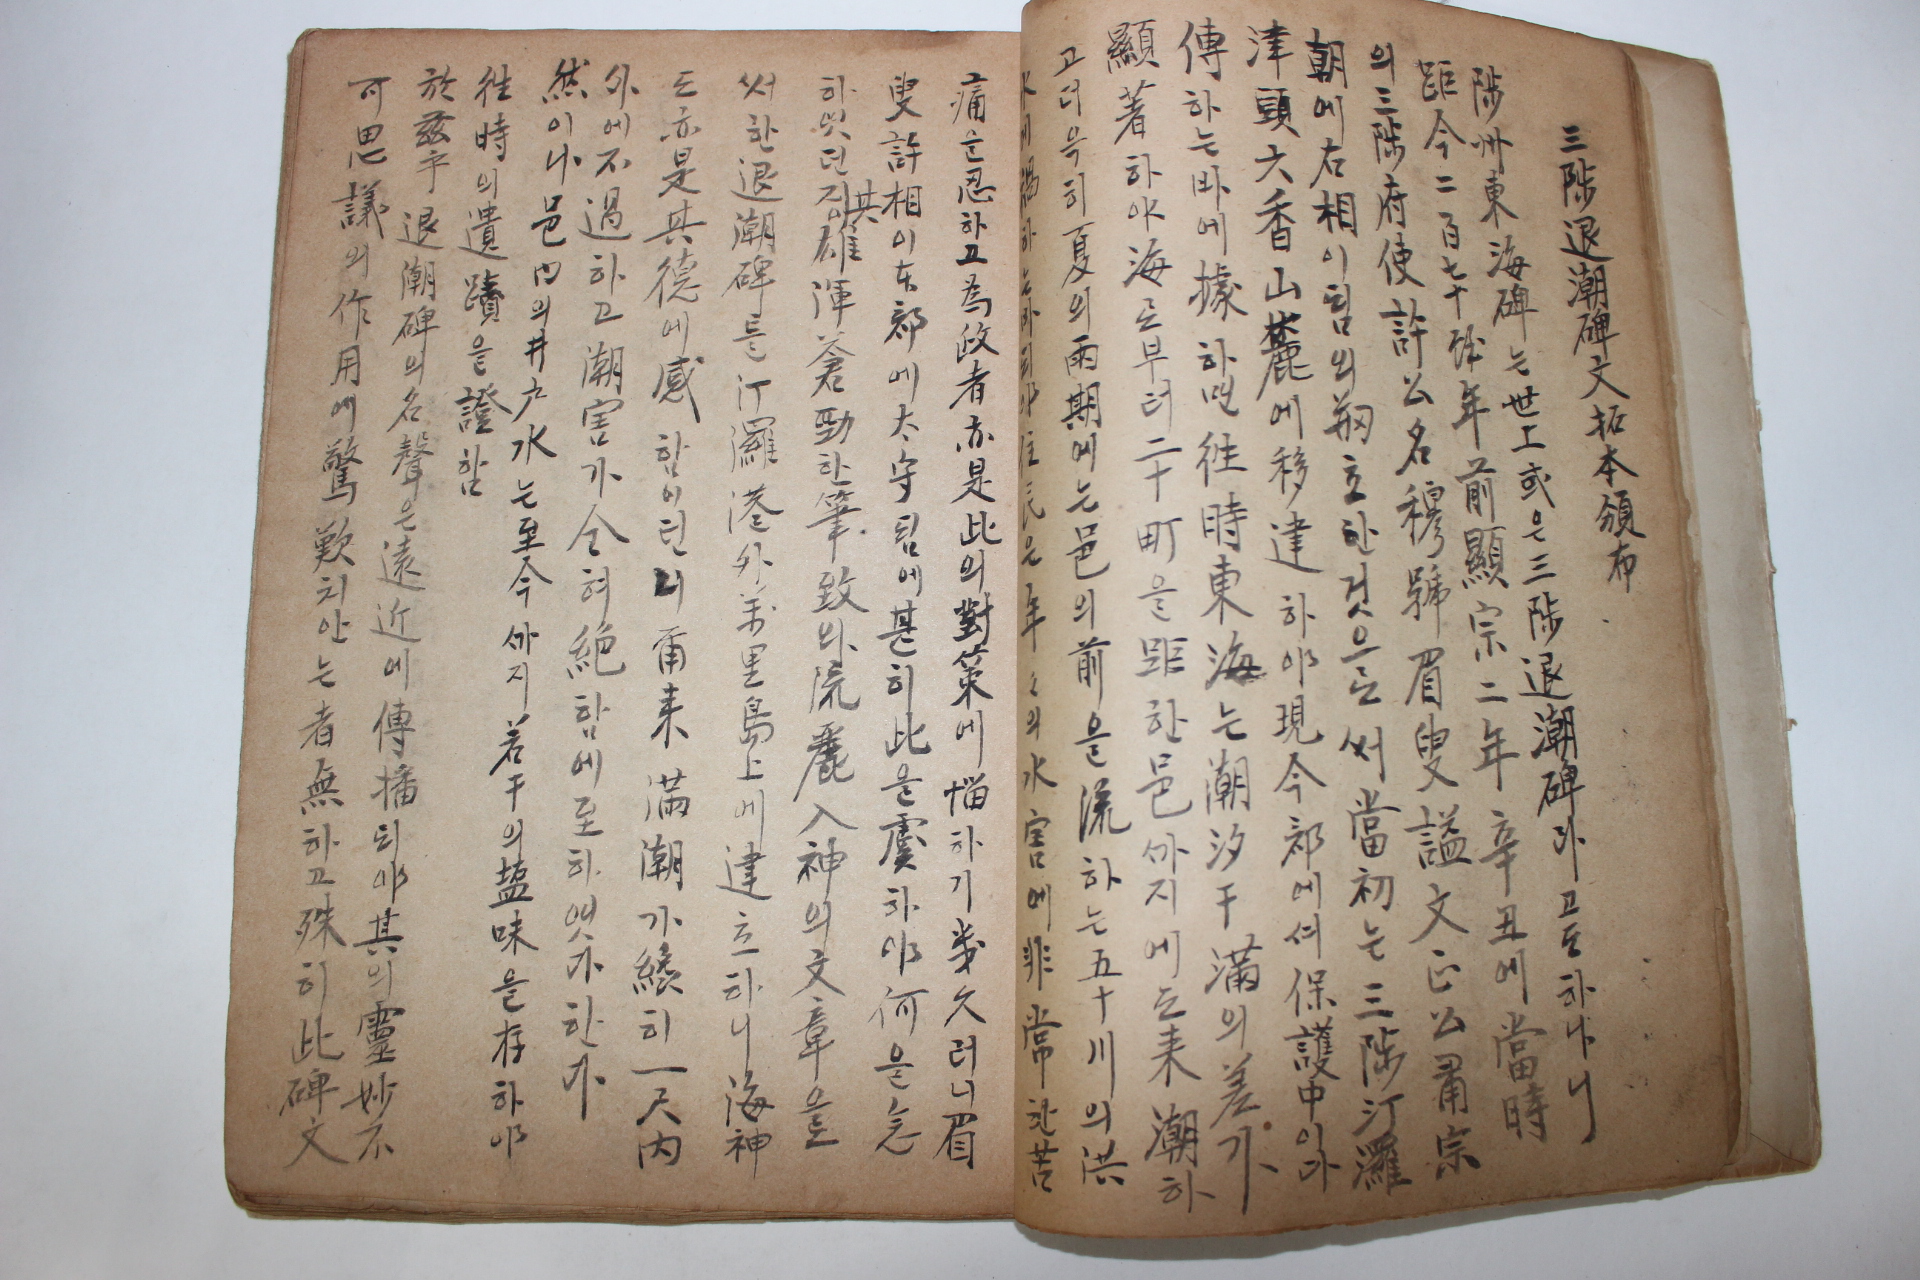 三陟退潮碑文拓本頒布
陟州東海碑는世上或은三陟退潮碑라고도하나니
距今二百七十餘年前顯宗二年辛丑에當時
의三陟府使許公名穆號眉叟諡文正公肅宗
朝에右相이됨의刱立한것으로써當初는三陟汀羅
津頭六香山麓에移建하야現今郡에셔保護中이라
傳하는바에據하면往時東海는潮汐干滿의差가
顯著하야海로부터二十町을距한邑까지에도来潮하
고더욱히夏의雨期에는邑의前을流하는五十川의洪
水에禍하는바되야住民은年々의水害에非常한苦
痛을忍하고為政者亦是此의對策에惱하기幾久러니眉
叟許相이本郡에太守됨에甚히此을虞하야何을念
하엿던지其雄渾蒼勁한筆致와流麗入神의文章을
써한退潮碑를汀羅港外万里島上에建立하니海神
도亦是其德에感함이던니爾来滿潮가纔히一尺内
外에不過하고潮害가全혀絶함에至하엿가한가
然이나邑内의井戶水는至今까지若干의塩味을存하야
往時의遺蹟을證함
於茲乎退潮碑의名聲은遠近에傳播되야其의靈妙不
可思議의作用에驚歎치안는者無하고殊히此碑文